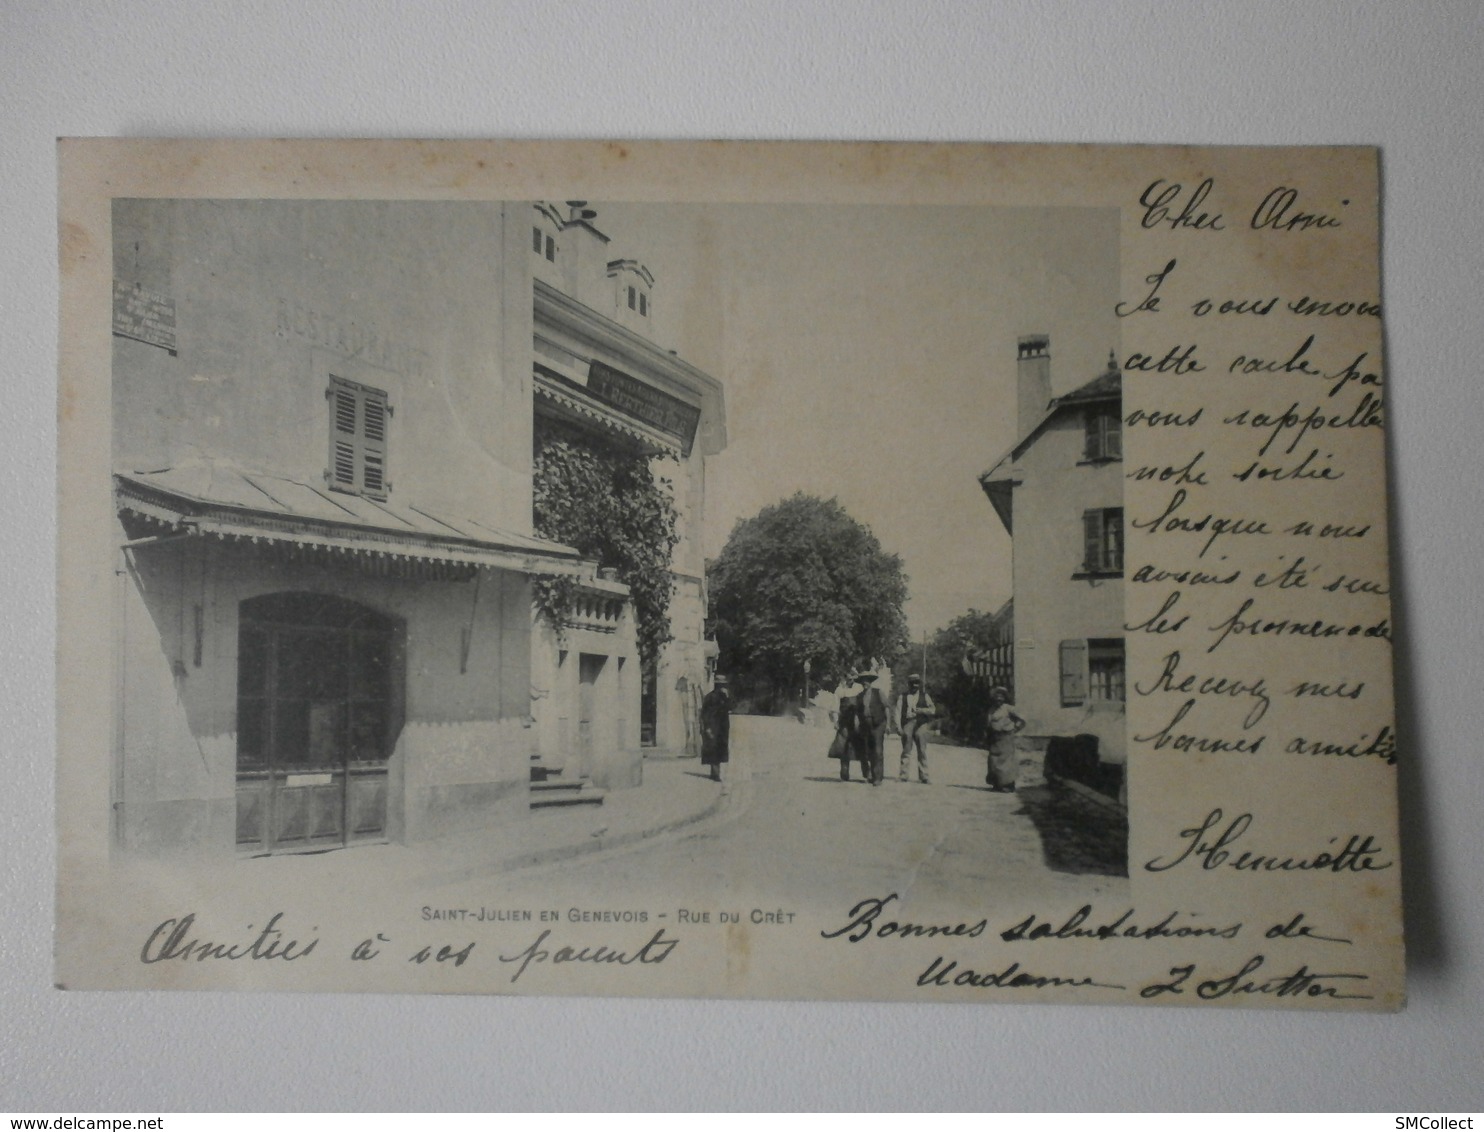 RESTAURANT
Cher Ami
Je vous envoie
cette carte pr
vous rappeller
notre sortie
lorsque nous
avions été sur
les promenade
Recevez mes
bonnes amitiés
Henriette
SAINT-JULIEN EN GENEVOIS - RUE DU CRÊT
Amitiés à vos parents
Bonnes salutations de
Madame J Sutter
SMCollect